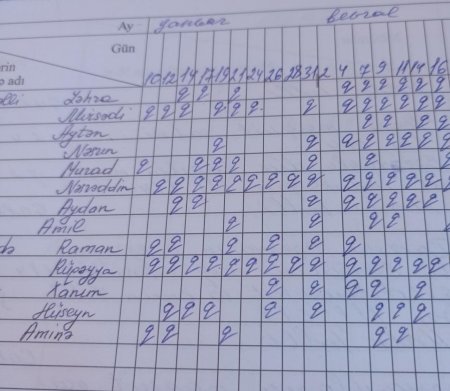 Ay yanvar fevral
Gün
10 12 14 17 19 21 24 26 28 31 2 4 7 9 11 14 16
adı
Zəhra q q q q q q q q q
q q q q q q q q q q q q q
Aytən q q q q
Nərun q q q q q q q q
Murad q q q q q q
q q q q q q q q q q q q q q q
Aydan q q q q q q q q
Amil q q q q
Raman q q q q q q
Rüqəyya q q q q q q q q q q q q q q q
Xanım q q q q q
Hüseyn q q q q q q q q
Aminə q q q q q